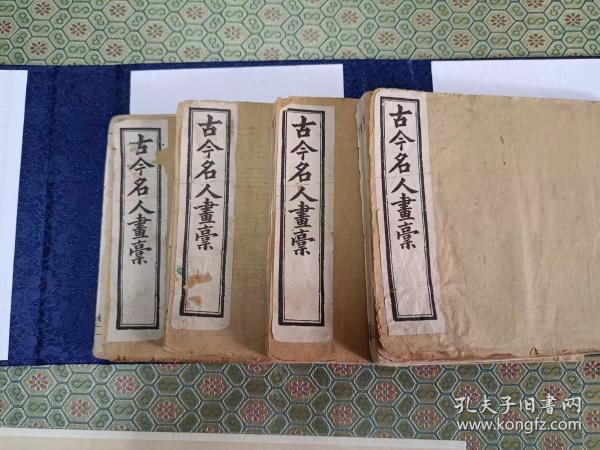 古今名人畫稾
古今名人畫稾
古今名人畫稾
古今名人畫稾
孔夫子旧書网
www.kongfz.com